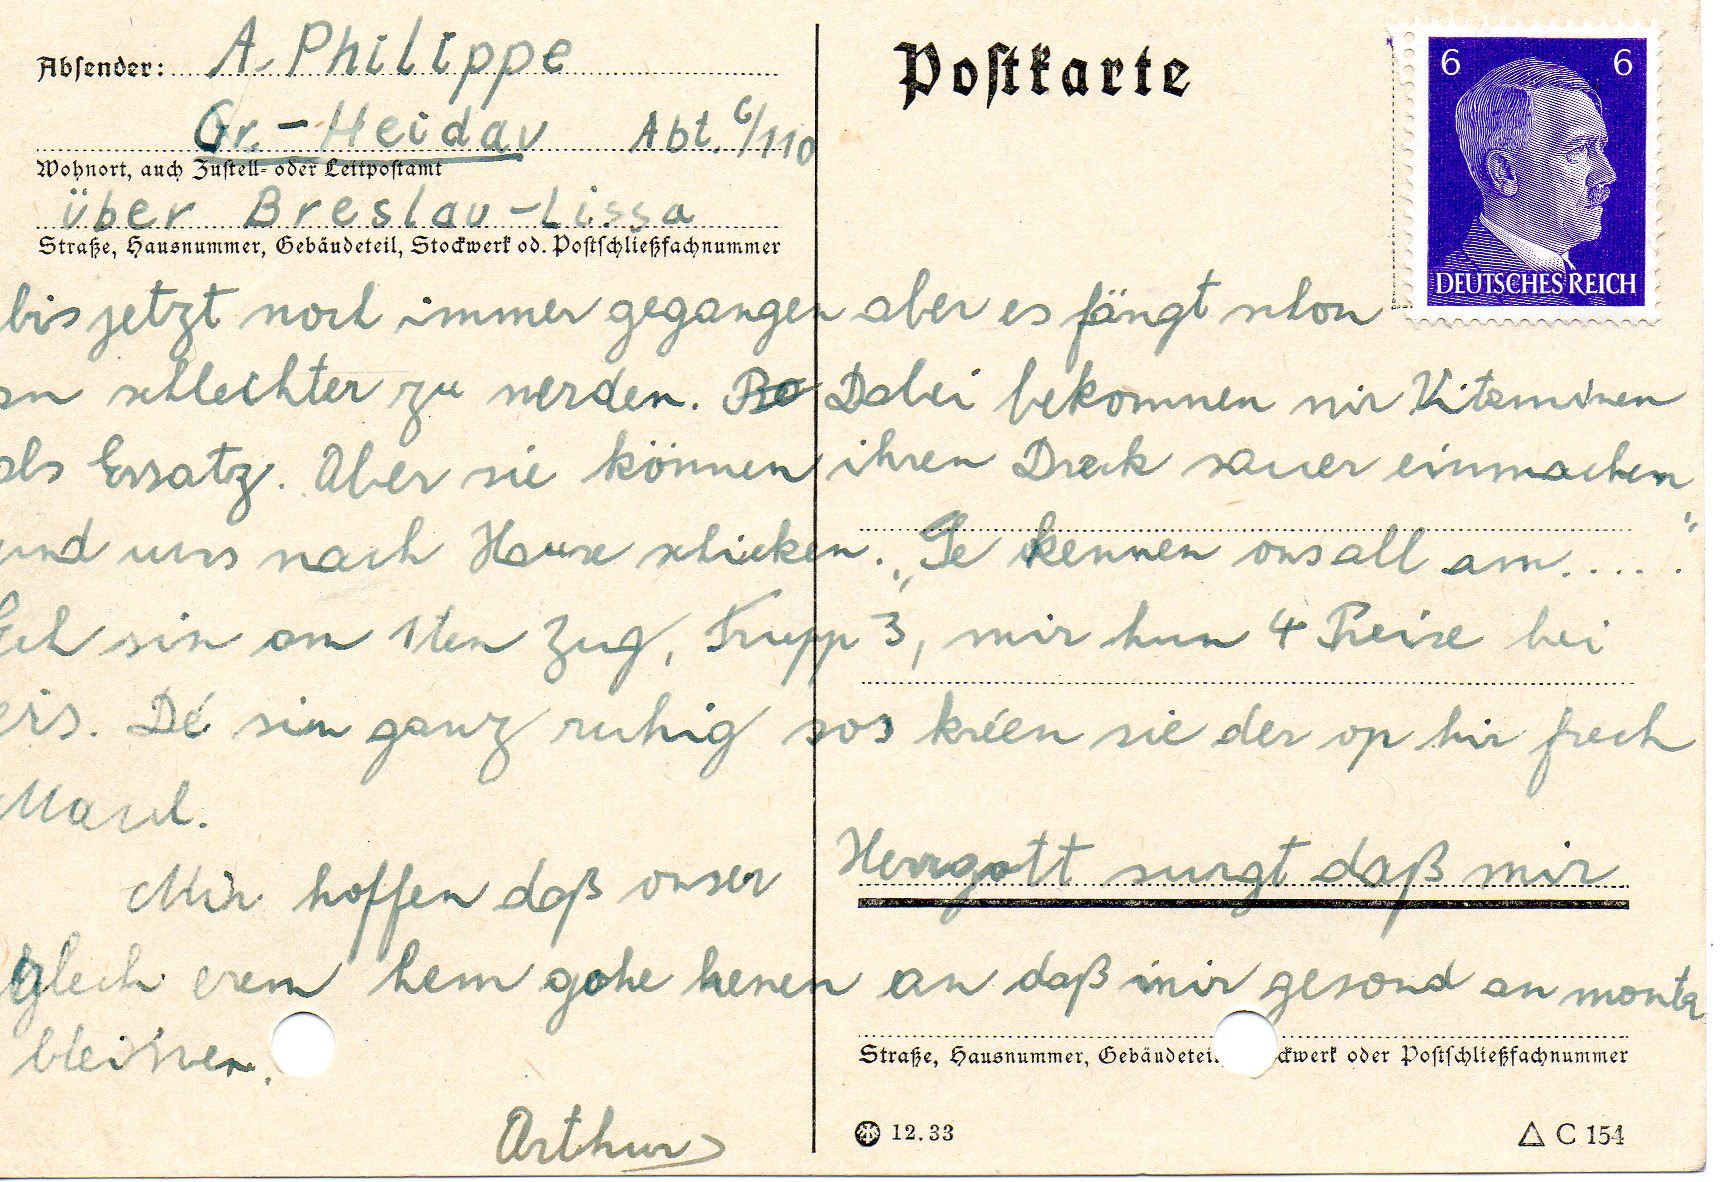 Absender: A. Philippe
Gr.-Heidau Abt. 6/110
Wohnort, auch Zustell- oder Leitpostamt
über Breslau-Lissa
Straße, Hausnummer, Gebäudeteil, Stockwerk od. Postschließfachnummer
Postkarte
6 6
DEUTSCHES REICH
bis jetzt noch immer gegangen aber es fängt schon
an schlechter zu werden. Dabei bekommen wir Vitaminen
als Ersatz. Aber sie können ihren Dreck sauer einmachen
und uns nach Hause schicken. „Se kennen ons all am....."
Ech sin am 1ten Zug, Trupp 3, mir hun 4 Preise bei
eis. Dé sin ganz ruhig sos kréen sie der op hir frech
Maul.
Mir hoffen daß onser Herrgott surgt daß mir
glech erem hem gohe kenen an daß mir gesond an monter
bleiwen.
Arthur
Straße, Hausnummer, Gebäudetei ckwerk oder Postschließfachnummer
12.33
C 154